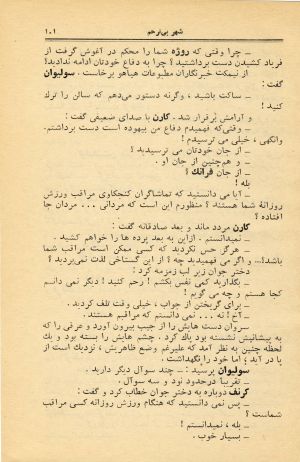 شهر بی‌ترحم
۱۰۱
ـ چرا وقتی که روژه شما را محکم در آغوش گرفت از
فریاد کشیدن دست برداشتید ؟ چرا به دفاع خودتان ادامه ندادید؟
از نیمکت خبرنگاران مطبوعات هیاهو برخاست . سولیوان
ـ ساکت باشید ، وگرنه دستور می‌دهم که سالن را ترك
کنید !
و آرامش برقرار شد . کارن با صدای ضعیفی گفت :
ـ وقتی‌که فهمیدم دفاع من بیهوده است دست برداشتم.
وانگهی ، خیلی می ترسیدم !
ـ از جان خودتان می ترسیدید ؟
ـ و همچنین از جان او .
ـ از جان فرانك ؟
بله !
ـ آیا می دانستید که تماشاگران کنجکاوی مراقب ورزش
روزانهٔ شما هستند ؟ منظورم این است که مردانی ... مردان جا
افتاده ؟
کارن مردد ماند و بعد صادقانه گفت :
ـ نمیدانستم . ازاین به بعد پرده ها را خواهم کشید .
ـ هرگز حس نکردید که کسی ممکن است مراقب شما
باشد؟... و اگر می فهمیدید چه ؟ از این گستاخی لذت نمی‌بردید ؟
دختر جوان زیر لب زمزمه کرد :
ـ بگذارید کمی نفس بکشم ! رحم کنید ! دیگر نمی دانم
کجا هستم و چه می گویم !
ـ برای گریختن از جواب ، خیلی وقت تلف کردید .
ـ آخ ! نه ... نمی دانستم که مراقبم هستند .
سروان دست هایش را از جیب بیرون آورد و عرقی را که
به پیشانیش نشسته بود پاك کرد . چشم هایش را بسته بود و یك
لحظه چنین به نظر آمد که علیرغم وضع ظاهریش ، نزدیك است از
پا در آید ، اما خود را نگهداشت .
سولیوان پرسید : ـ چند سوآل دیگر دارید .
ـ تقریباً درحدود نود و سه سوآل .
کرنف دوباره به دختر جوان خطاب کرد و گفت :
ـ پس نمی دانستید که هنگام ورزش روزانه کسی مراقب
شماست ؟
ـ بله ، نمیدانستم !
ـ بسیار خوب .